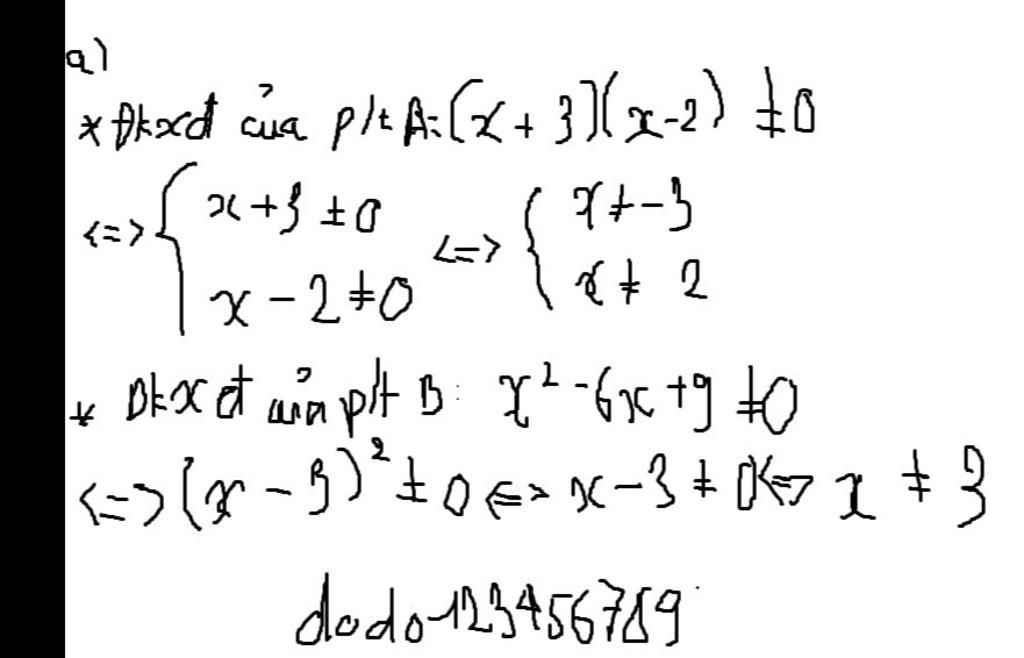 a)
* Đkxđ của p/t A: (x + 3)(x - 2) ≠ 0
<=> { x + 3 ≠ 0 <=> { x ≠ -3
x - 2 ≠ 0 x ≠ 2
* Đkxđ của p/t B: x² - 6x + 9 ≠ 0
<=> (x - 3)² ≠ 0 <=> x - 3 ≠ 0 <=> x ≠ 3
dodo-123456789